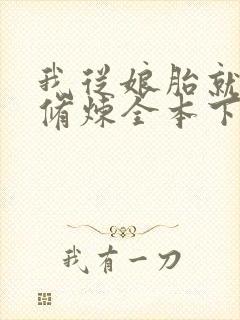 我从娘胎就
脩炼全本下
我有一刀